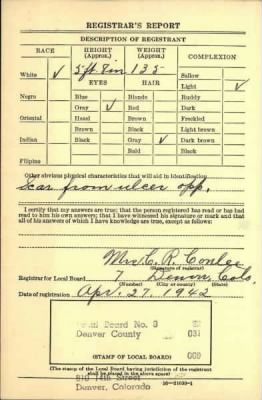 REGISTRAR'S REPORT
DESCRIPTION OF REGISTRANT
RACE HEIGHT (Approx.) WEIGHT (Approx.) COMPLEXION
White ✓ 5 ft 8 in 135 Sallow
EYES HAIR Light ✓
Negro Blue Blonde Ruddy
Gray ✓ Red Dark
Oriental Hazel Brown Freckled
Brown Black Light brown
Indian Black Gray ✓ Dark brown
Bald Black
Filipino
Other obvious physical characteristics that will aid in identification
Scar from ulcer opp.
I certify that my answers are true; that the person registered has read or has had
read to him his own answers; that I have witnessed his signature or mark and that
all of his answers of which I have knowledge are true, except as follows:
Mrs. C. R. Conlee
(Signature of registrar)
Registrar for Local Board 7 Denver Colo.
(Number) (City or county) (State)
Date of registration Apr. 27, 1942
Board No. 3
Denver County 031
(STAMP OF LOCAL BOARD)
(The stamp of the Local Board having jurisdiction of the registrant
shall be placed in the above space)
810 14th Street
Denver, Colorado
16-21630-1